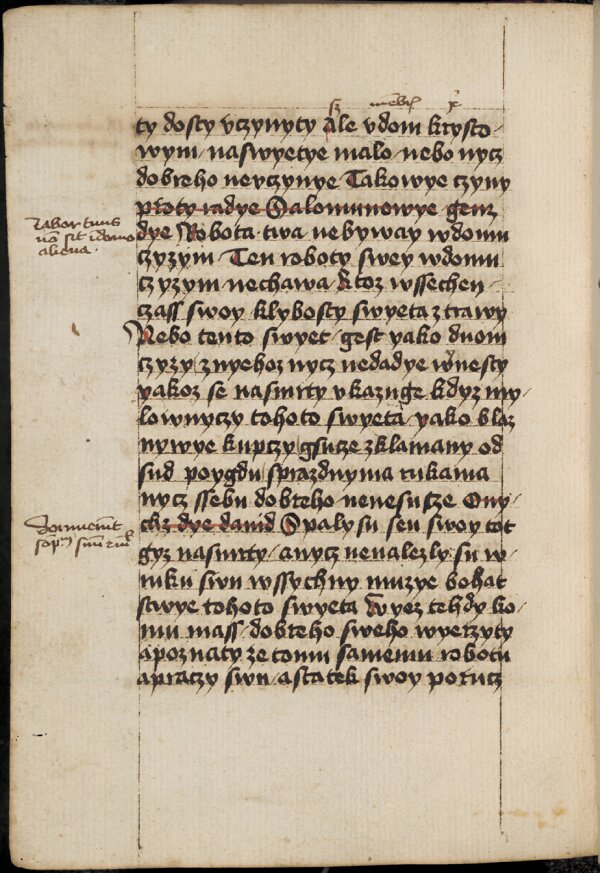 ty dosty vczynyty Ale vdom krysto-
wym naswyetye malo nebo nycz
dobreho nevczynye Takowye czyny
proty radye Salomunowye genz
dye Robota twa nebyway wdomu
czyzym Ten roboty swey wdomu
czyzym nechawa Ktoz wssechen
czass swoy klybosty swyeta ztrawy
Nebo tento swyet gest yako duom
czyzy znyehoz nycz nedadye wnesty
yakoz se nasmrty vkazuge kdyz my-
lownyczy tohoto swyeta yako blaz
nywye kupczy gsucze zklamany od
sud poygdu sprazdnyma rukama
nycz ssebu dobreho nenesucze Ony
chz dye dauid Spaly su sen swoy tot
gyz nasmrty anycz nenalezly su w-
ruku swu wssychny muzye bohat
stwye tohoto swyeta Wyez tehdy ko-
mu mass dobreho sweho wyerzyty
apoznaty ze tomu samemu robotu
apraczy swu astatek swoy porucz
labor tuus
non sit in domo
aliena
Dormierunt